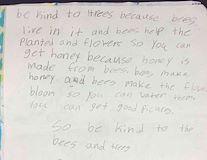 be kind to trees because bees
live in it and bees help the
planted and flowers so you can
get honey because honey is
made from bees. bees make
honey and bees make the flowers
bloom so you can water them
you can get good
So be kind to the
bees and trees